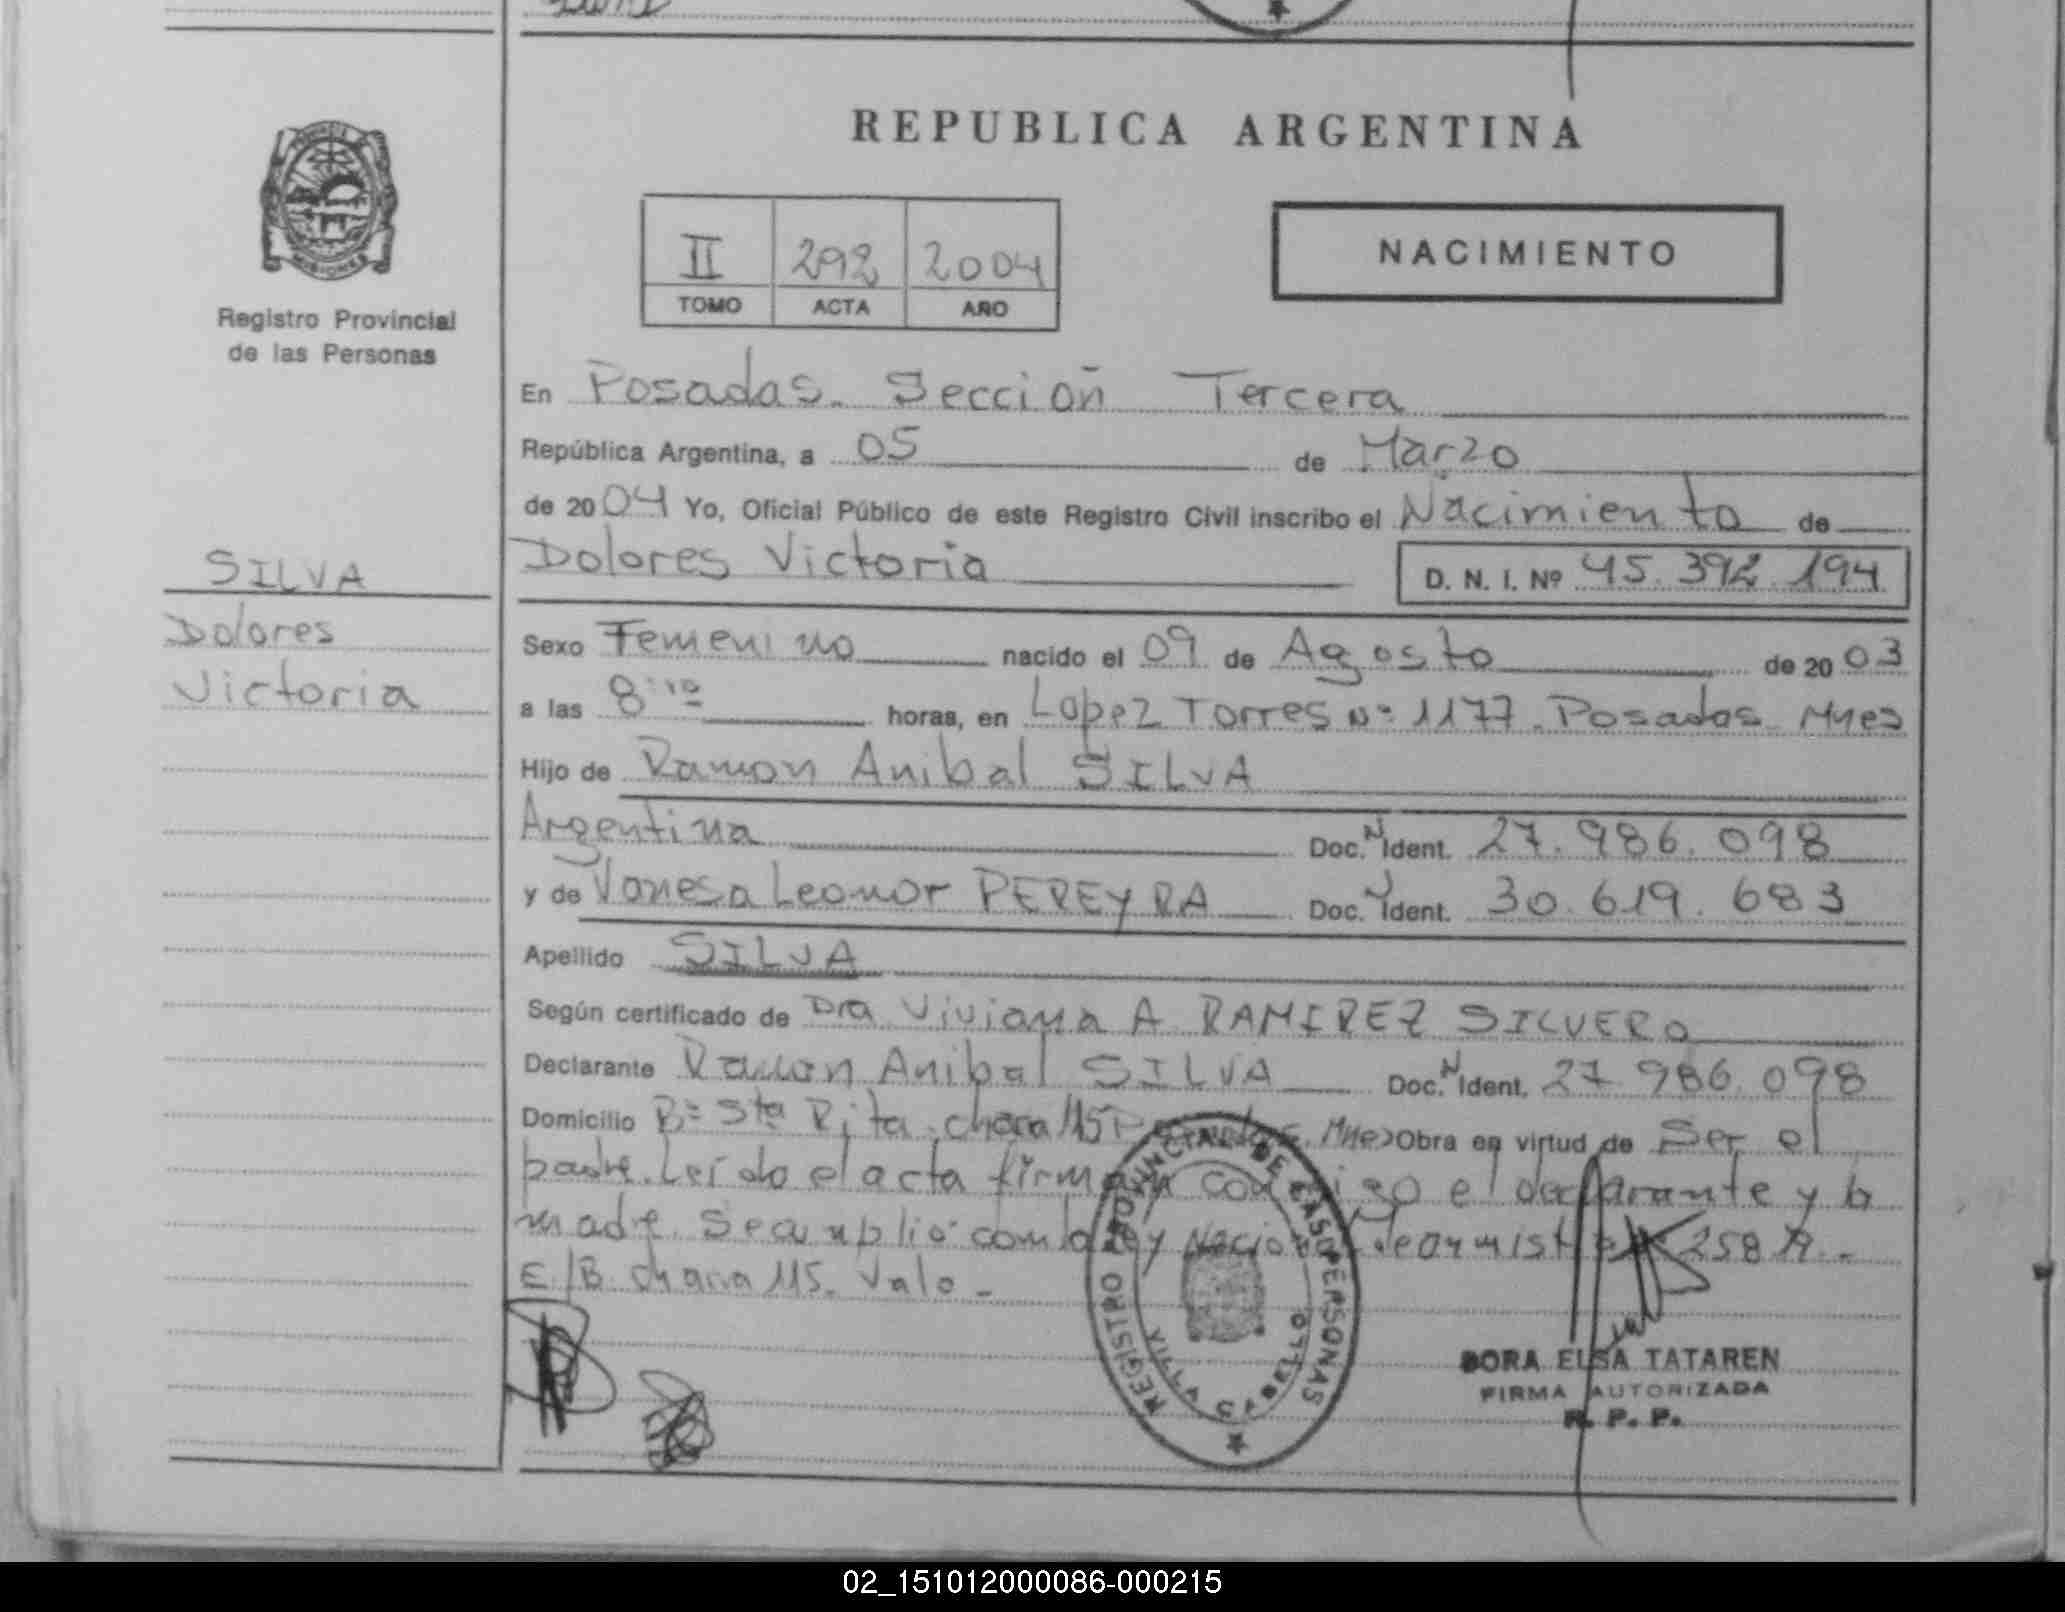 REPUBLICA ARGENTINA
MISIONES
Registro Provincial
de las Personas
II 292 2004
TOMO ACTA AÑO
NACIMIENTO
En Posadas. Sección Tercera
República Argentina, a 05 de Marzo
de 2004 Yo, Oficial Público de este Registro Civil inscribo el Nacimiento de
SILVA
Dolores
Victoria
Dolores Victoria D. N. I. Nº 45.392.194
Sexo Femenino nacido el 09 de Agosto de 2003
a las 8:10 horas, en Lopez Torres Nº 1177. Posadas Mnes
Hijo de Ramon Anibal SILVA
Argentina Doc. N Ident. 27.986.098
y de Vanesa Leonor PEREYRA Doc. Ident. 30.619.683
Apellido SILVA
Según certificado de Dra Viviana A RAMIREZ SILVERO
Declarante Ramon Anibal SILVA Doc. N Ident. 27.986.098
Domicilio Bº Sta Rita. chacra 115 Mnes Obra en virtud de Ser el
padre. Leido el acta firman conmigo el declarante y la
madre. Se cumplió con la ley Nacional de amnistia 258
E/B. chacra 115. Vale.-
REGISTRO PROVINCIAL DE LAS PERSONAS
VILLA CABELLO
DORA ELSA TATAREN
FIRMA AUTORIZADA
R. P. P.
02_151012000086-000215